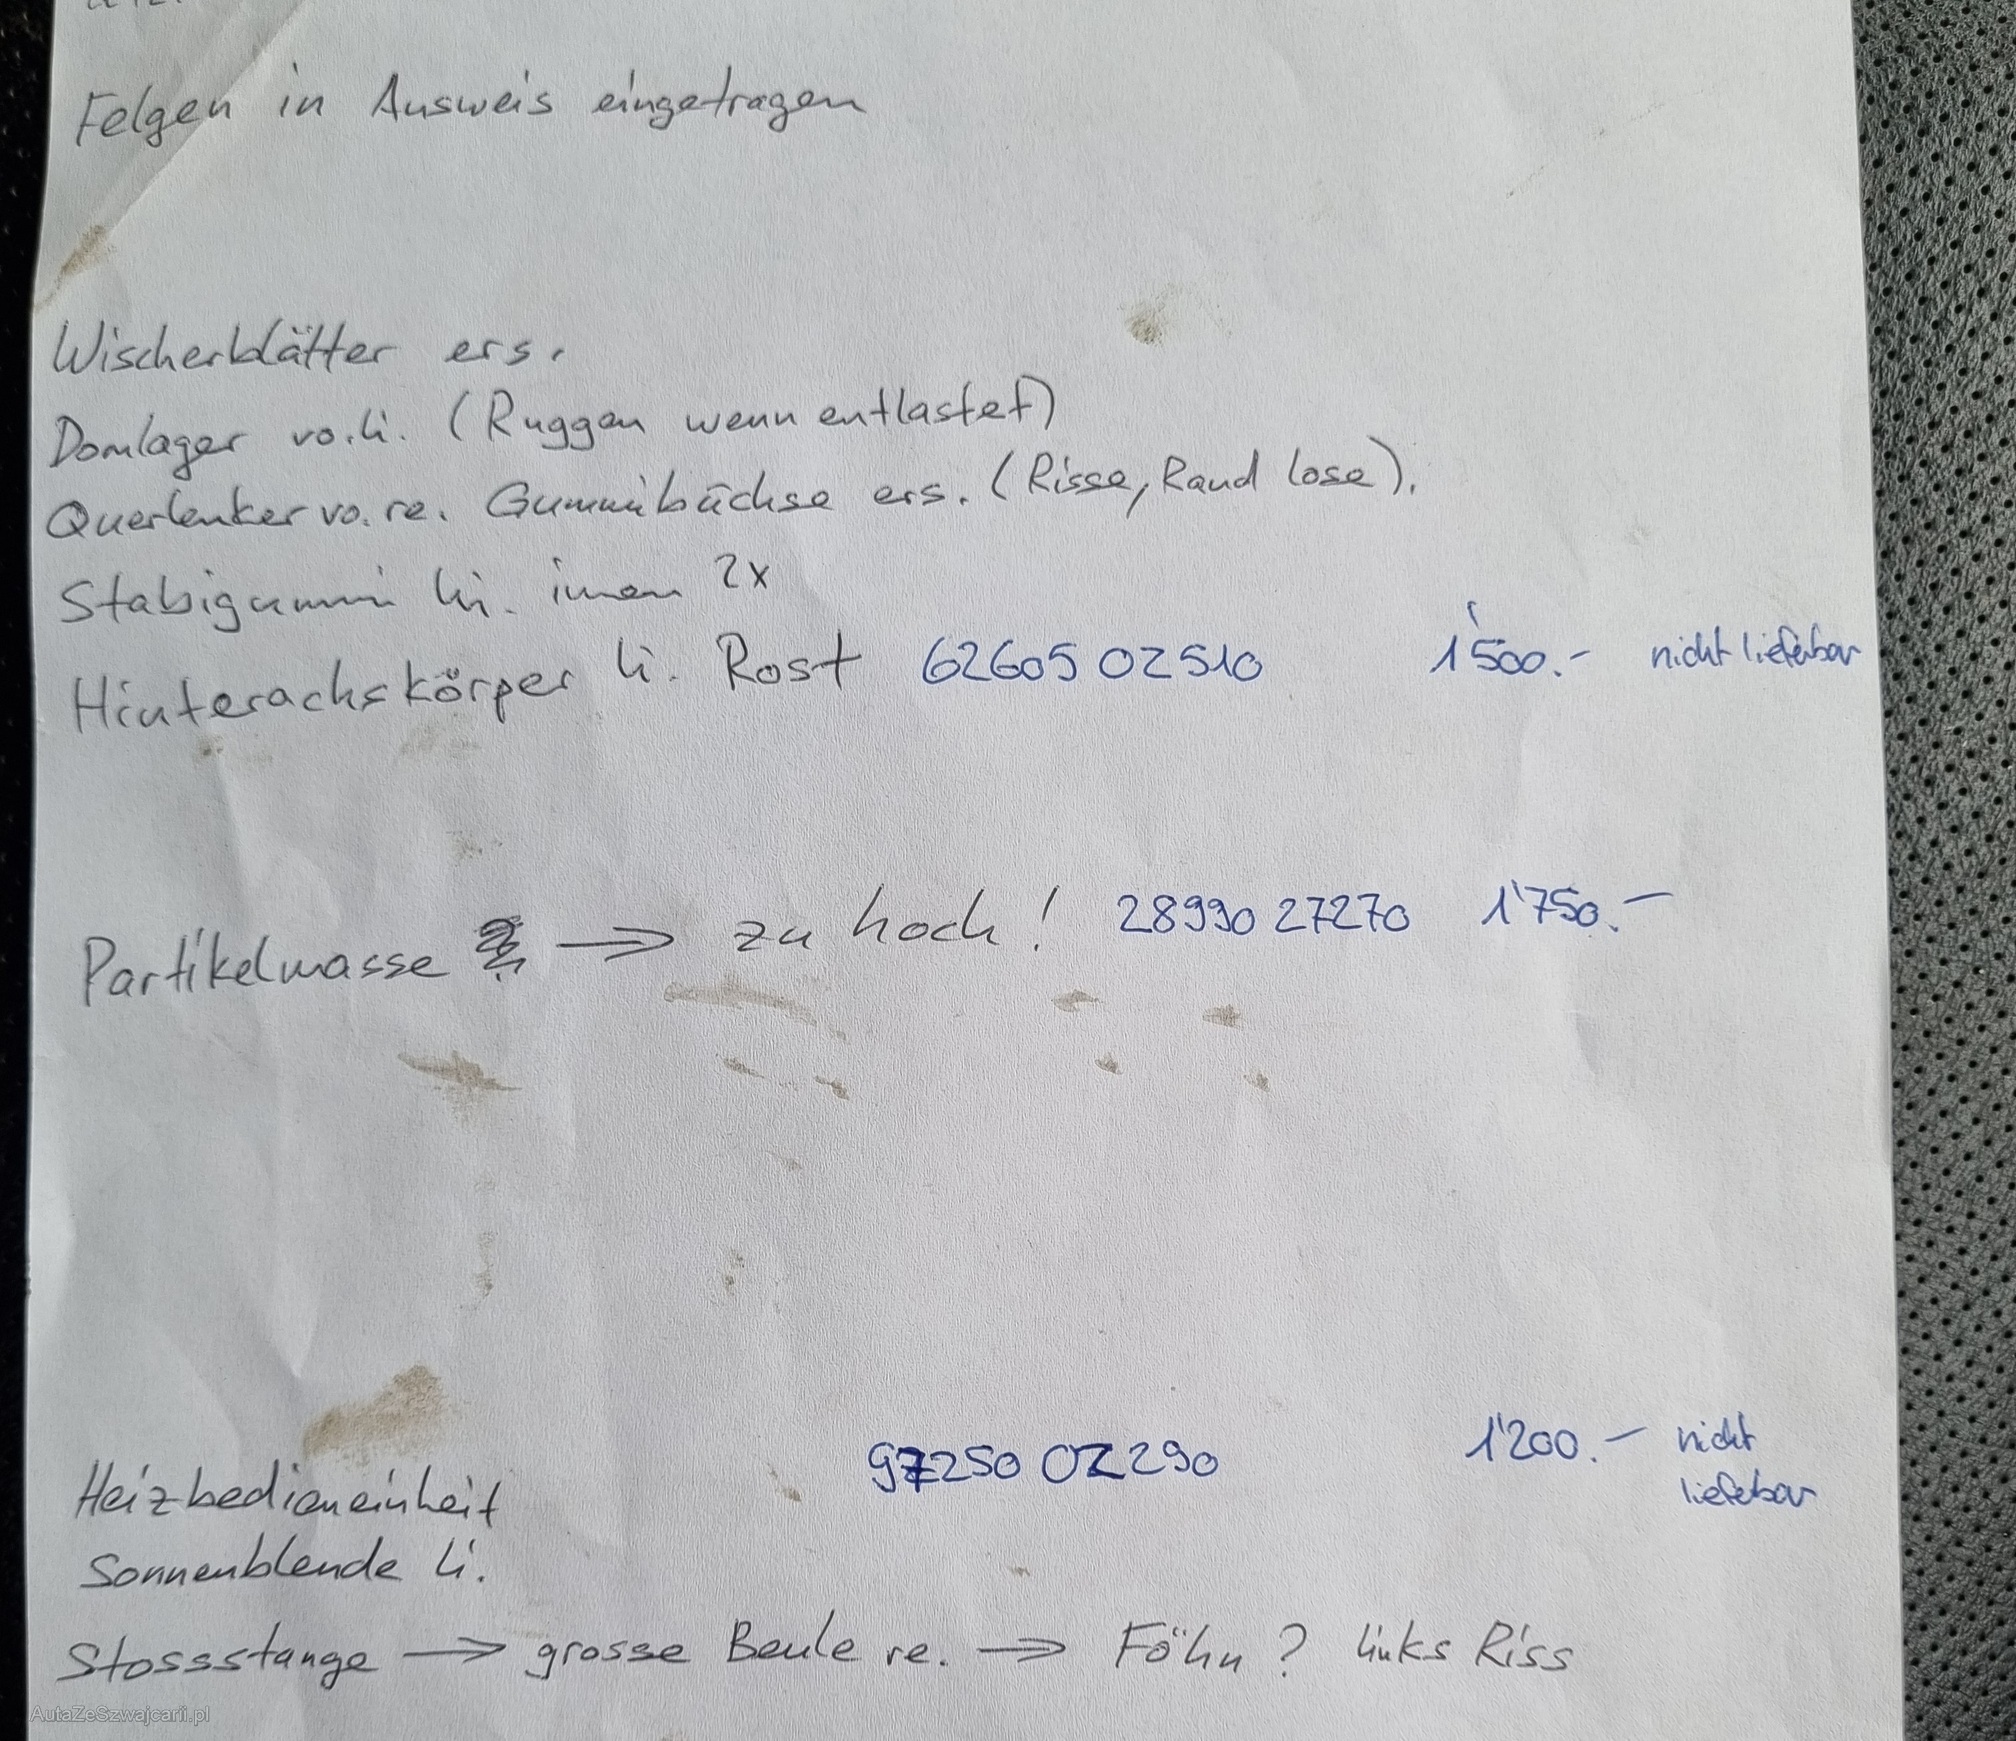 Felgen in Ausweis eingetragen
Wischerblätter ers.
Domlager vo.li. (Ruggen wenn entlastet)
Querlenker vo.re. Gummibüchse ers. (Risse, Rand lose).
Stabigummi li. innen 2x
Hinterachskörper li. Rost 62605 0Z510 1'500.- nicht lieferbar
Partikelmasse → zu hoch! 28990 27270 1'750.-
Heizbedieneinheit 97250 0Z290 1'200.- nicht
lieferbar
Sonnenblende li.
Stossstange → grosse Beule re. → Föhn? links Riss
AutaZeSzwajcarii.pl